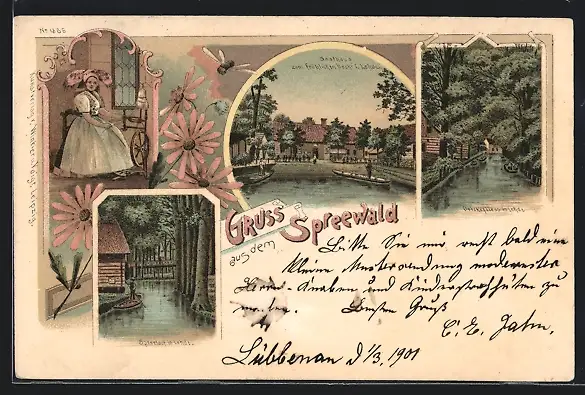 Nr. 486
Gasthaus
zum fröhlichen Hecht i. Lehde
GRUSS
aus dem
SPREEWALD
Bitte Sie mir recht bald eine
kleine Mustersendung modernster
Herren- Knaben und Kinderstrohhüten zu
senden. Besten Gruß
C. E. Jahn.
Lübbenau d 1/3. 1901